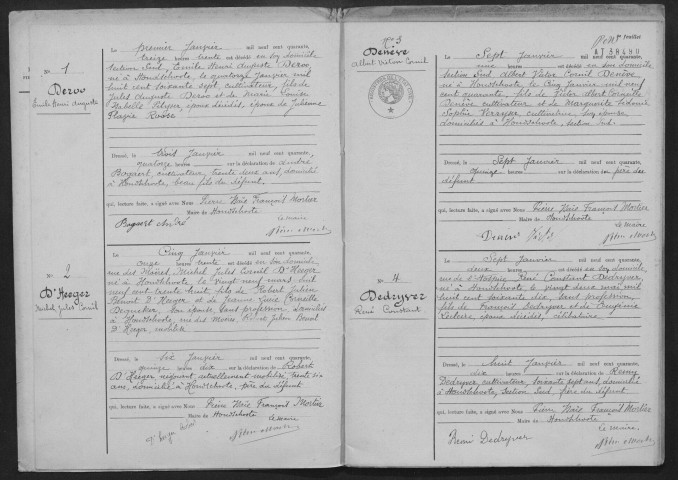 N° 1
Deroo
Emile Henri Auguste
Le premier Janvier mil neuf cent quarante,
treize heures trente est décédé en son domicile
section Sud, Emile Henri Auguste Deroo,
né à Hondschoote, le quatorze Janvier, mil
huit cent soixante sept, cultivateur, fils de
Jules Auguste Deroo et de Marie Louise
époux décédés, époux de Julienne
Dressé, le trois Janvier mil neuf cent quarante,
quatorze heures sur la déclaration de André
Bogaert, cultivateur, trente deux ans, domicilié
à Hondschoote, beau fils du défunt
qui, lecture faite, a signé avec Nous Pierre Noël François Mortier
Maire de Hondschoote
Bogaert André
Le maire
N° 2
D'Heeger
Michel Jules Cornil
Le Cinq Janvier mil neuf cent quarante,
onze heures trente est décédé en son domicile
rue des Michel Jules Cornil D'Heeger
né à Hondschoote, le vingt neuf mars mil
neuf cent trente huit fils de Robert Julien
Benoit D'Heeger et de Jeanne Cornette
son épouse, sans profession, domiciliés
à Hondschoote, rue des
D'Heeger, mobilisé
Dressé, le Six Janvier mil neuf cent quarante,
quinze heures dix sur la déclaration de Robert
D'Heeger actuellement mobilisé, trente six
ans, domicilié à Hondschoote, père du défunt
qui, lecture faite, a signé avec Nous Pierre Noël François Mortier
Maire de Hondschoote
Le maire
N° 3
Denève
Albert Victor Cornil
feuillet
Le Sept Janvier mil neuf cent quarante,
cinq heures est décédé en son domicile
section Sud Albert Victor Cornil Denève
né à Hondschoote, le Cinq Janvier mil neuf
cent quarante, fils de Victor Albert Corneille
Denève cultivateur et de Marguerite
Sophie cultivatrice, son épouse,
domiciliés à Hondschoote, section Sud.
Dressé, le Sept Janvier mil neuf cent quarante,
quinze heures sur la déclaration du père du
défunt
qui, lecture faite, a signé avec Nous Pierre Noël François Mortier
Maire de Hondschoote
Le maire
N° 4
Dedryver
René Constant
Le Sept Janvier mil neuf cent quarante,
deux heures est décédé en son domicile,
rue de René Constant Dedryver,
né à Hondschoote, le vingt deux mai mil
huit cent soixante dix, sans profession,
fils de François Dedryver et de
époux décédés, célibataire
Dressé, le huit Janvier mil neuf cent quarante,
dix heures sur la déclaration de Remy
Dedryver, cultivateur, soixante sept ans, domicilié
à Hondschoote, section Sud, frère du défunt
qui, lecture faite, a signé avec Nous Pierre Noël François Mortier
Maire de Hondschoote
Le maire
Remi Dedryver